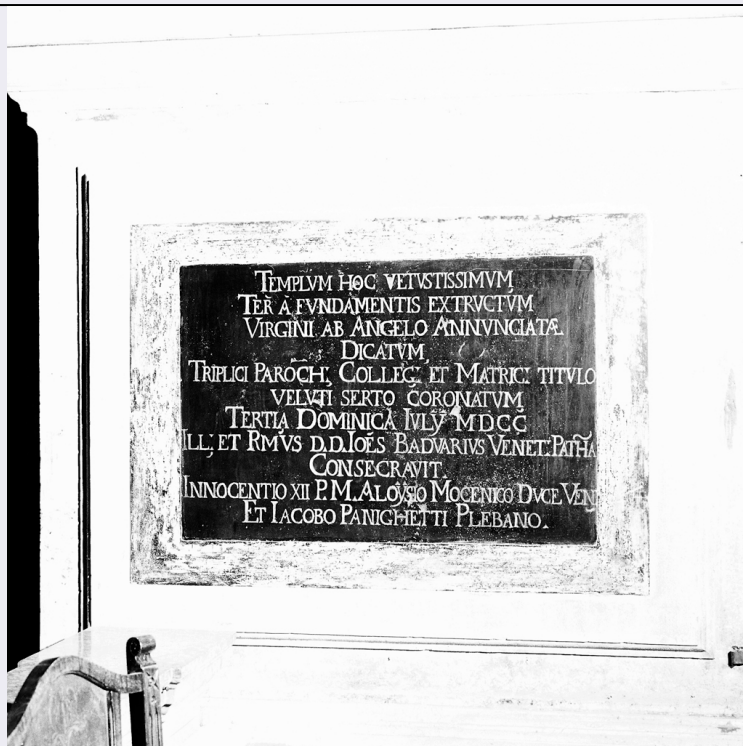 TEMPLVM HOC VETVSTISSIMVM
TER À FVNDAMENTIS EXTRVCTVM
VIRGINI AB ANGELO ANNVNCIATÆ
DICATVM,
TRIPLICI PAROCH; COLLEG; ET MATRIC; TITVLO
VELVTI SERTO CORONATVM
TERTIA DOMINICA IVLY MDCC
ILL; ET RMVS D.D.IOES BADVARIVS VENET: PATHA
CONSECRAVIT.
INNOCENTIO XII P.M. ALOYSIO MOCENICO DVCE VEN;
ET IACOBO PANIGHETTI PLEBANO.